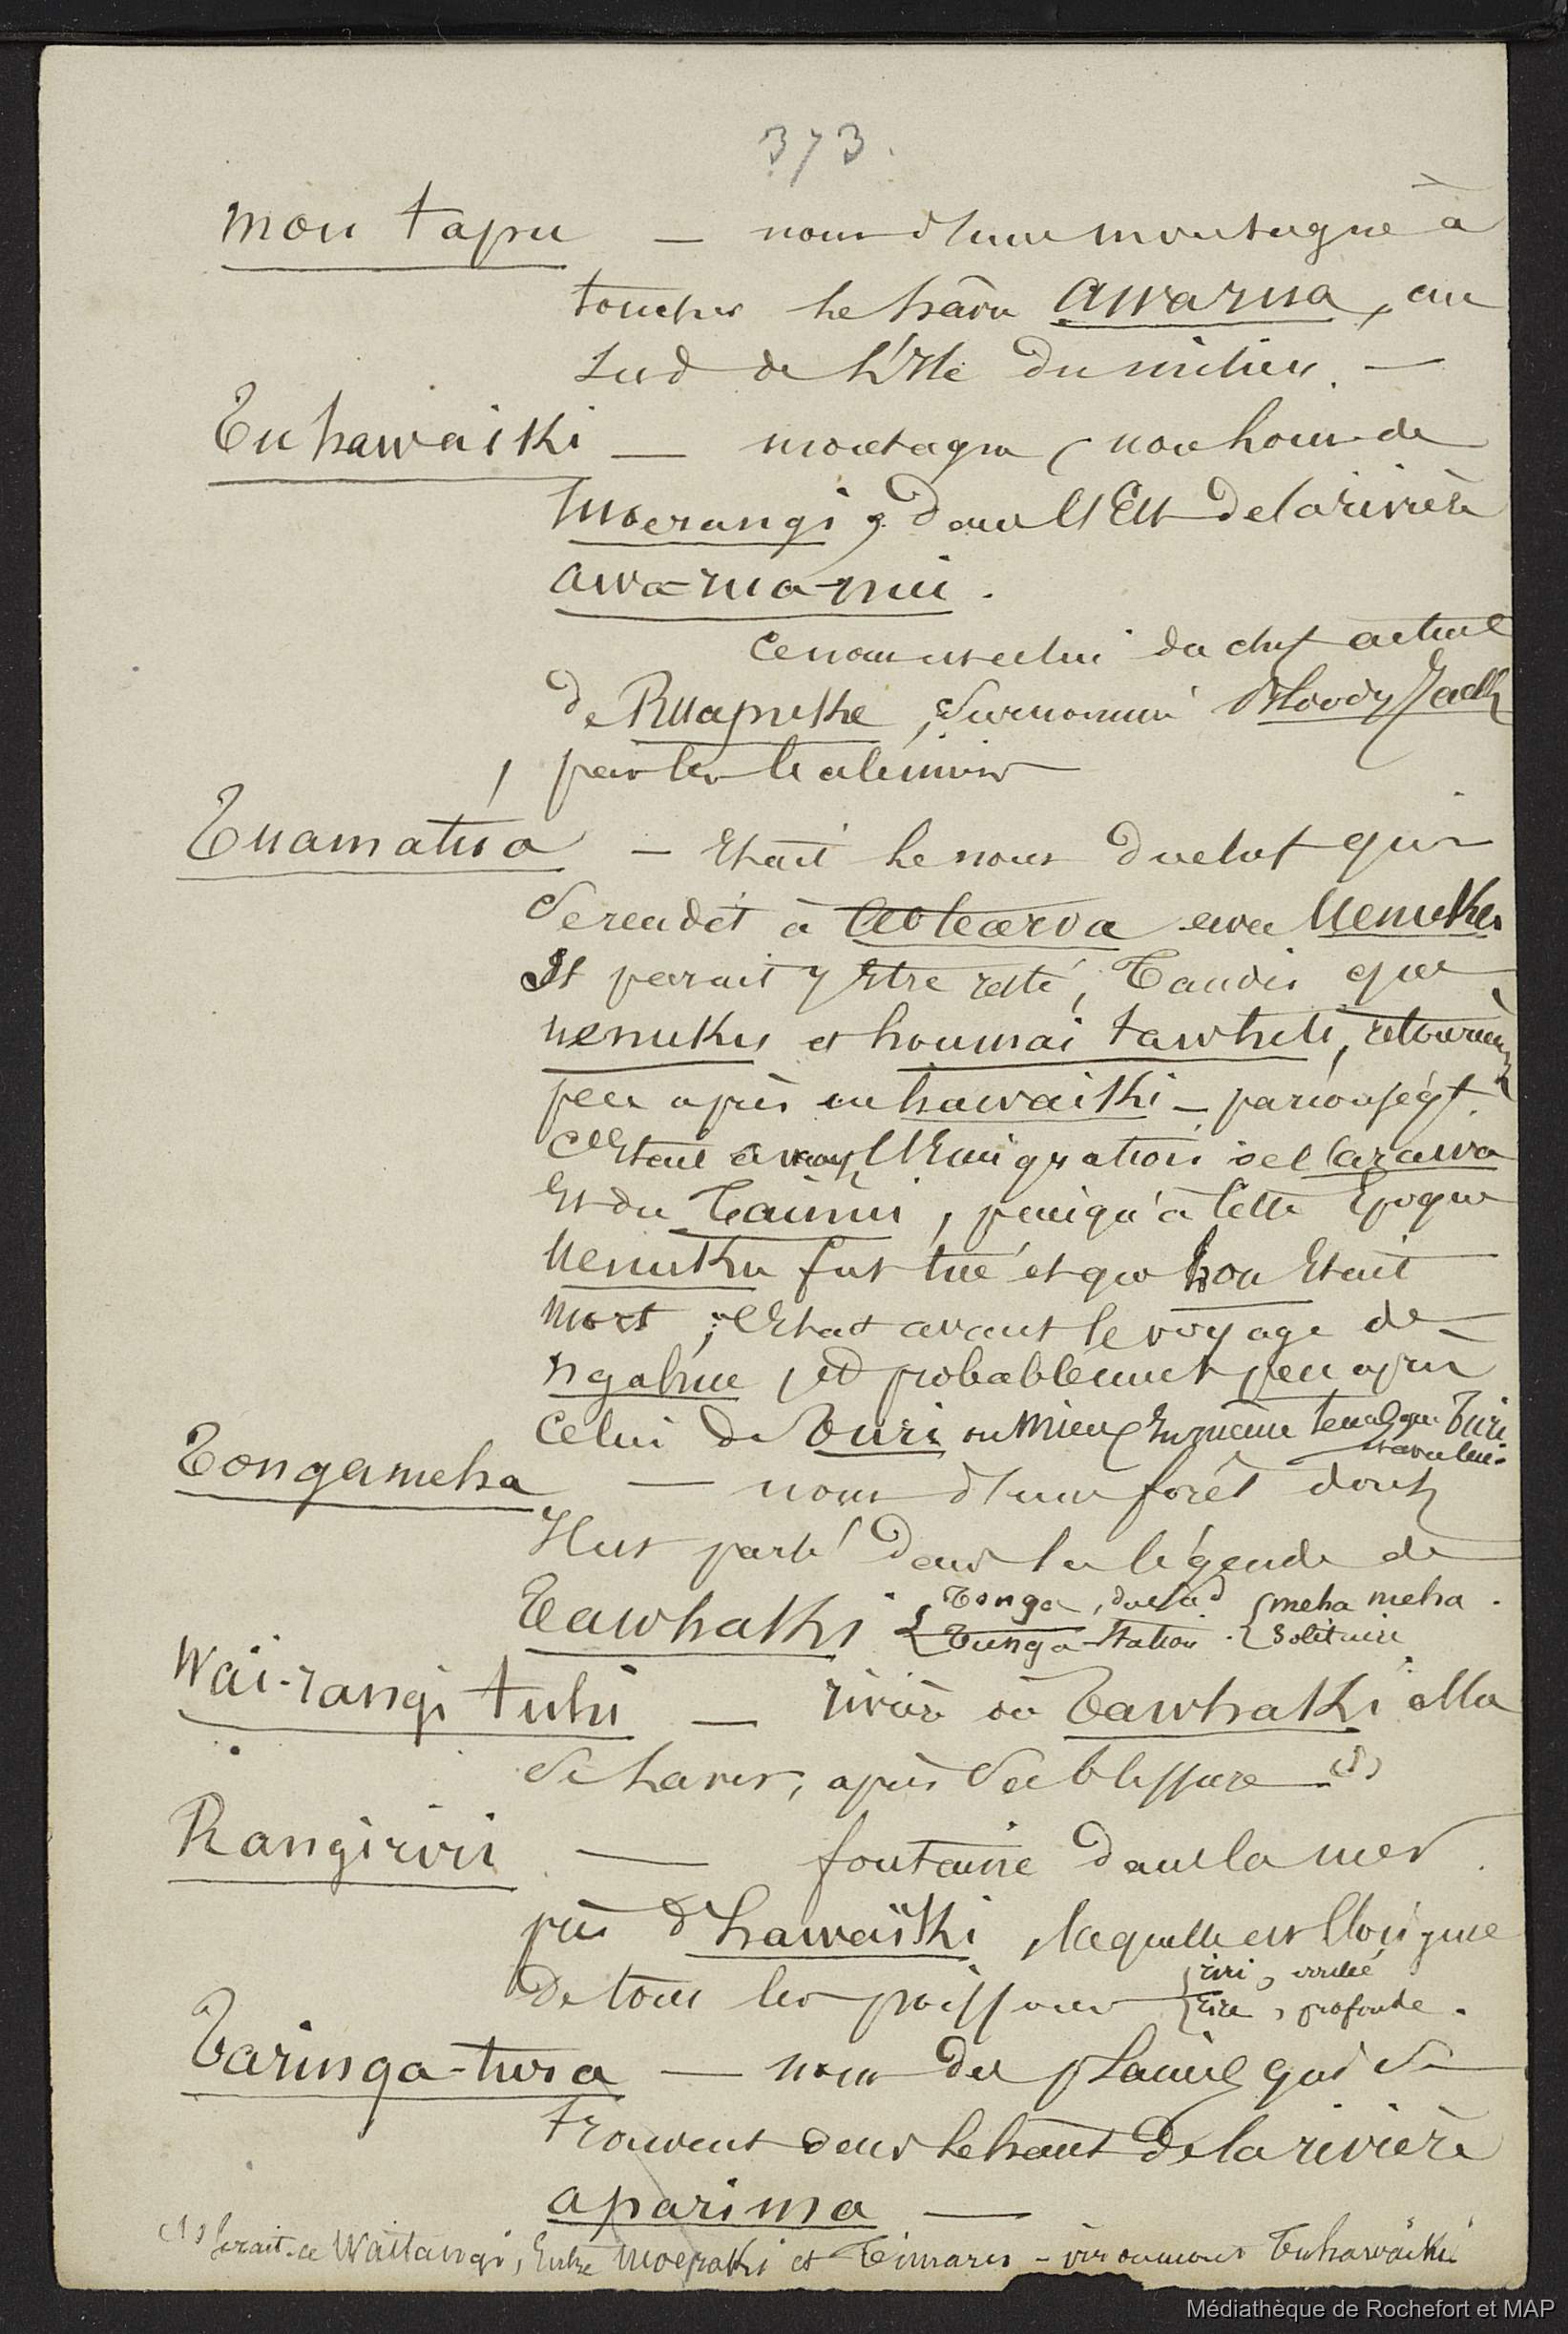 373.
mou tapu — nom d'une montagne à
toucher le hâvre awarua, au
Sud de l'Ile du milieu. —
Tuhawaiki — montagne, non loin de
moerangi, dans l'Est de la rivière
awa-rua-nui.
Ce nom est celui du chef actuel
de Ruapuke, surnommé Bloody Jack
par les baleiniers
Tuamatua — Etait le nom du chef qui
Se rendit à Aotearoa avec Uenuku
Il parait y Etre resté, Tandis que
uenuku et houmai tawhiti, retournèrent
peu après en hawaiki — par conséqt.
C'Etait avant l'Emigration de l'arawa
Et du Tainui, puisqu'à cette Epoque
Uenuku fut tué et que hou Etait
mort; C'Etait avant le voyage de
ngahue, et probablement peu après
Celui de Turi ou mieux En même temps que Turi
Tongameha — nom d'une forêt dont
Il est parlé dans la légende de
Tawhaki { Tonga, du sud { meha meha.
{ Tunga station. { Solitaire
Wai-rangi tuhi — rivière où Tawhaki alla
Se laver, après Sa blessure (1)
Rangiriri — fontaine dans la mer
près d'hawaïki, laquelle est l'origine
De tous les poissons { riri,
{ rire, profonde.
Taringa-tura — nom des plaines qui Se
trouvent dans le haut De la rivière
aparima —
(1) Serait-ce Waitangi, Entre moeraki et Timaru - Tuhawaiki
Médiathèque de Rochefort et MAP